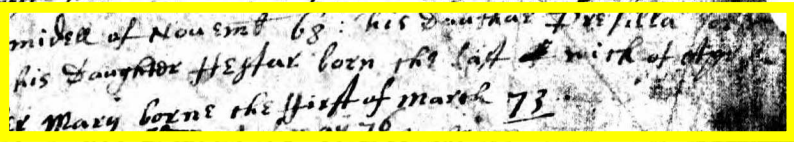 midell of Novemb 68: his Dauthar Presilla
his Daughter Hestar born the last wick of
Mary borne the first of March 73